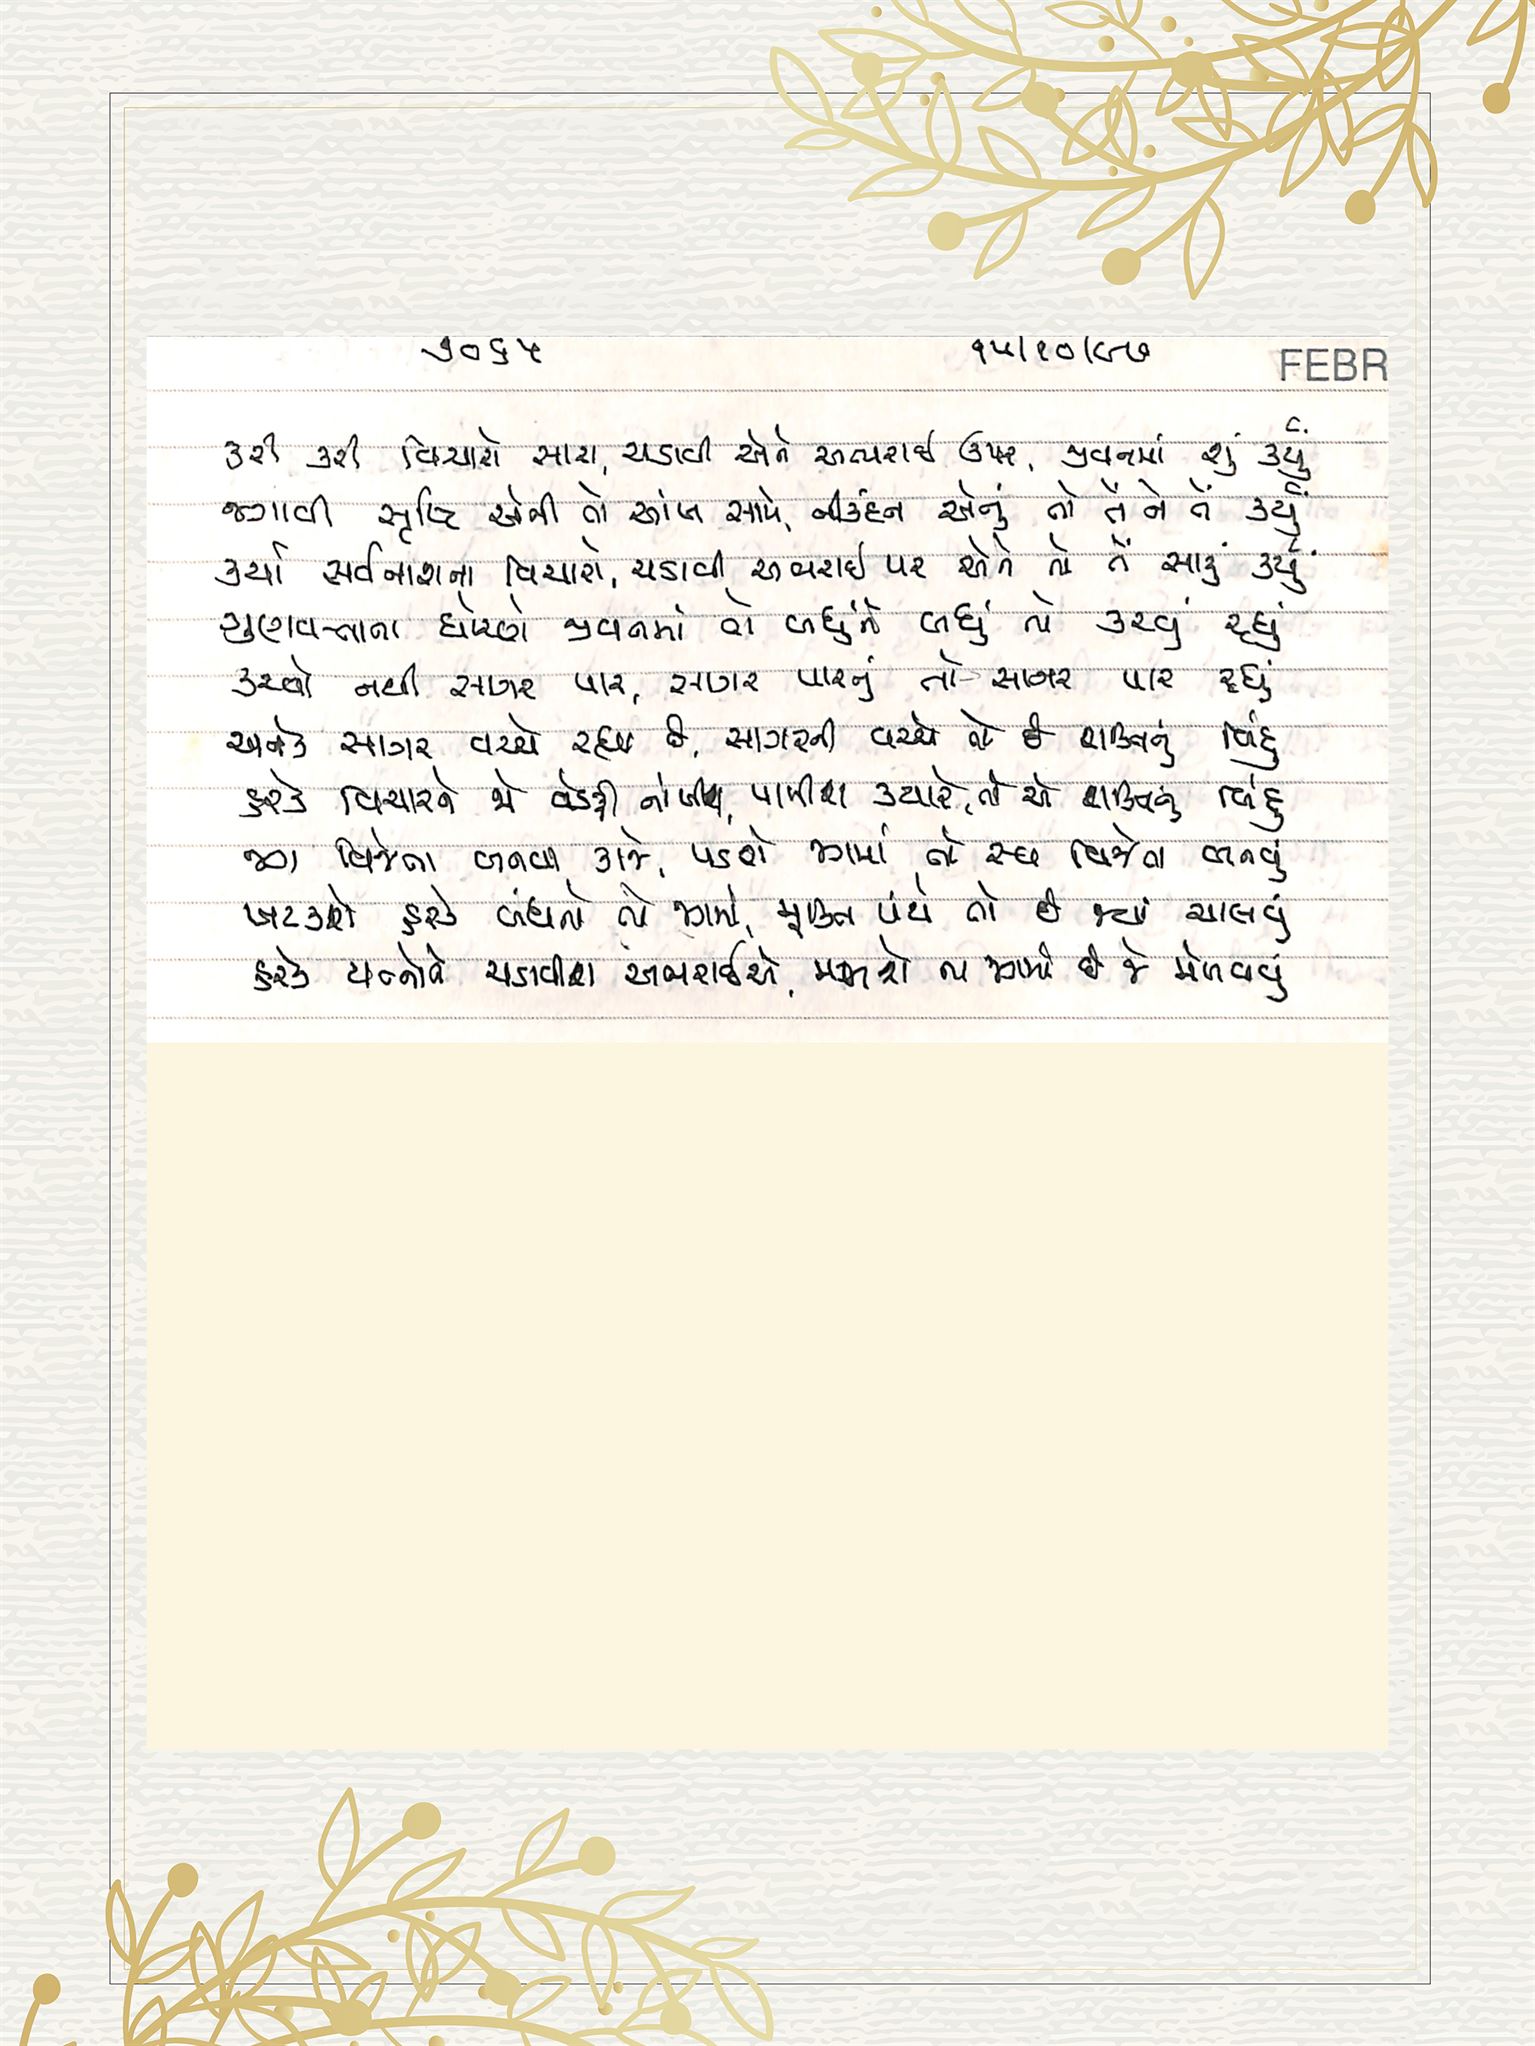 ૭૦૬૫ ૧૫/૧૦/૯૭ FEBR
કરી કરી વિચારો સારા, ચડાવી એને અભરાઈ ઉપર, જીવનમાં શું કર્યું
જગાવી સૃષ્ટિ એની તો આંખ સામે, નીકંદન એનું તો તેં ને તેં કર્યું
કર્યા સર્વનાશના વિચારો, ચડાવી અભરાઈ પર એને તો તેં સારું કર્યું
ગુણવત્તાના ધોરણે જીવનમાં તો બધુંને બધું તો કરવું રહ્યું
કરશો નથી સાગર પાર, સાગર પારનું તો સાગર પાર રહ્યું
અનેક સાગર વચ્ચે રહ્યા છે, સાગરની વચ્ચે તો છે શક્તિનું બિંદુ
હરેક વિચારને જો વેડફી નાંખીશ, પામીશ ક્યારે, તો એ શક્તિનું બિંદુ
જગ વિજેતા બનવા કાજે, પડશે જગમાં તો સ્વ વિજેતા બનવું
ખટકશે હરેક બંધનો તો જગમાં, મુક્તિ પંથે તો છે જ્યાં ચાલવું
હરેક યત્નોને ચડાવીશ અભરાઈએ, મળશે ના જગમાં છે જે મેળવવું